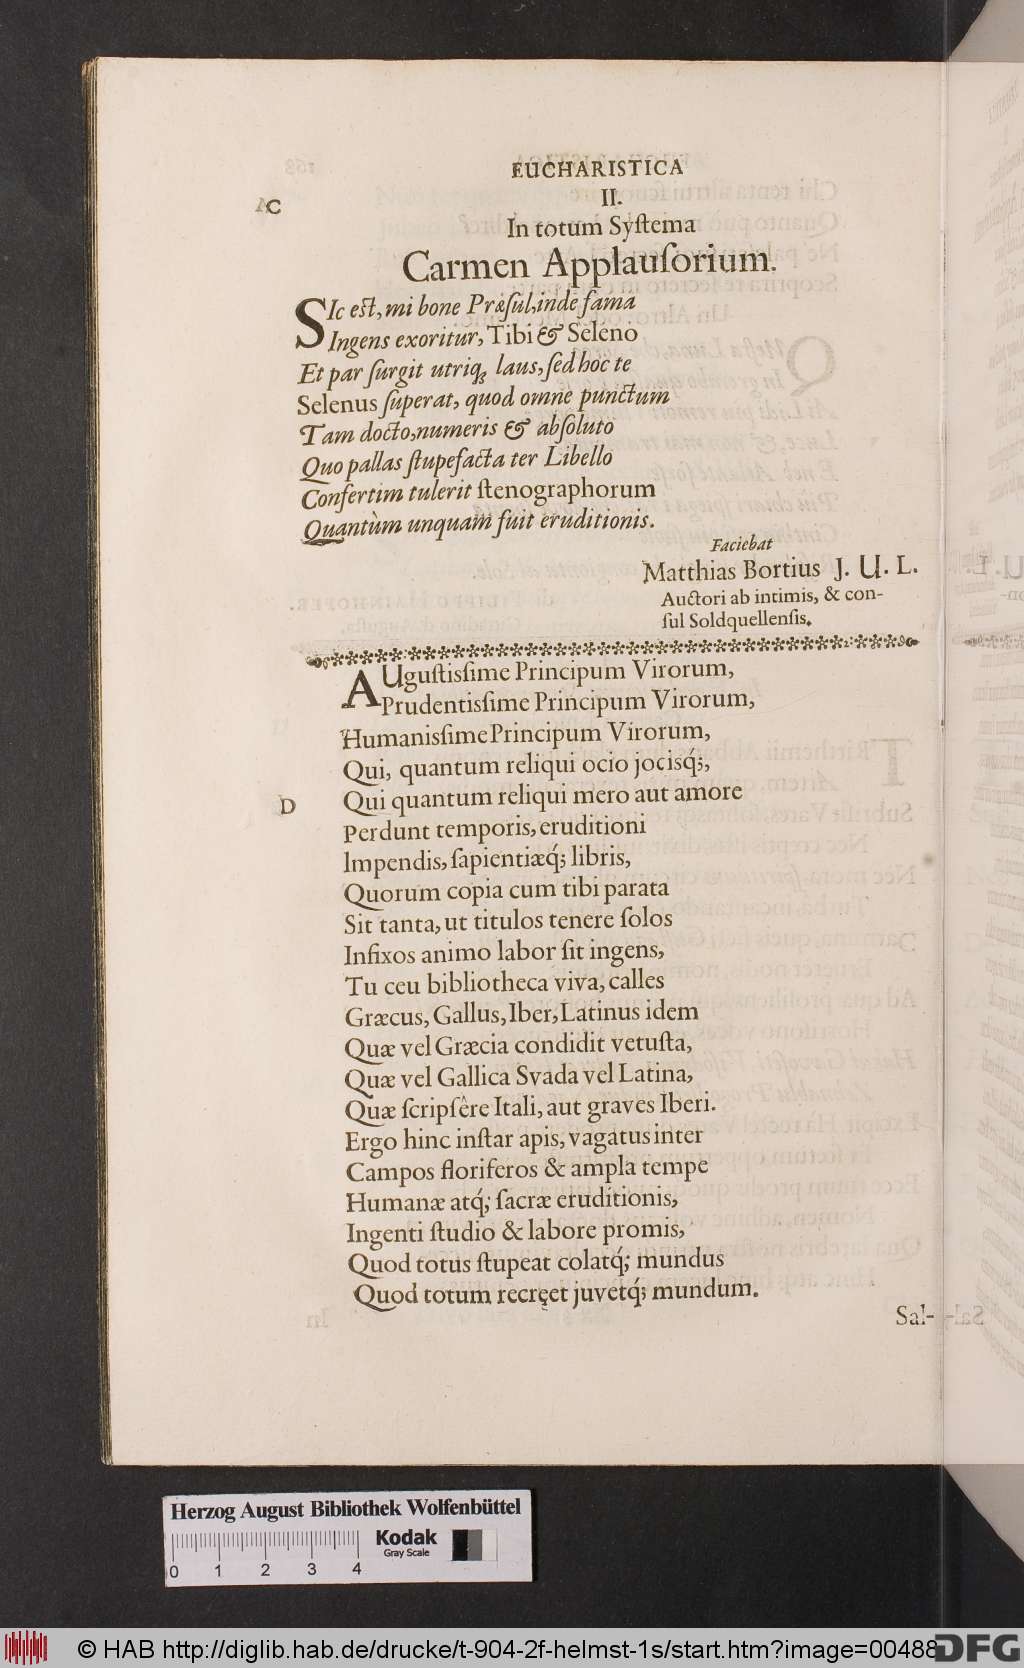 EUCHARISTICA
II.
C
In totum Syſtema
Carmen Applauſorium.
SIc eſt, mi bone Præſul, inde fama
Ingens exoritur, Tibi & Seleno
Et par ſurgit utriq́ꝫ laus, ſed hoc te
Selenus ſuperat, quod omne punctum
Tam docto, numeris & abſoluto
Quo pallas ſtupefacta ter Libello
Confertim tulerit ſtenographorum
Quantùm unquam fuit eruditionis.
Faciebat
Matthias Bortius J. U. L.
Auctori ab intimis, & con-
ſul Soldquellenſis.
AUguſtisſime Principum Virorum,
Prudentisſime Principum Virorum,
Humanisſime Principum Virorum,
Qui, quantum reliqui ocio jocisq́;,
D
Qui quantum reliqui mero aut amore
Perdunt temporis, eruditioni
Impendis, ſapientiæq́; libris,
Quorum copia cum tibi parata
Sit tanta, ut titulos tenere ſolos
Infixos animo labor ſit ingens,
Tu ceu bibliotheca viva, calles
Græcus, Gallus, Iber, Latinus idem
Quæ vel Græcia condidit vetuſta,
Quæ vel Gallica Svada vel Latina,
Quæ ſcripſêre Itali, aut graves Iberi.
Ergo hinc inſtar apis, vagatus inter
Campos floriferos & ampla tempe
Humanæ atq́; ſacræ eruditionis,
Ingenti ſtudio & labore promis,
Quod totus ſtupeat colatq́; mundus
Quod totum recreet juvetq́; mundum.
Sal-
Herzog August Bibliothek Wolfenbüttel
Kodak
Gray Scale
0 1 2 3 4
© HAB http://diglib.hab.de/drucke/t-904-2f-helmst-1s/start.htm?image=00488
DFG